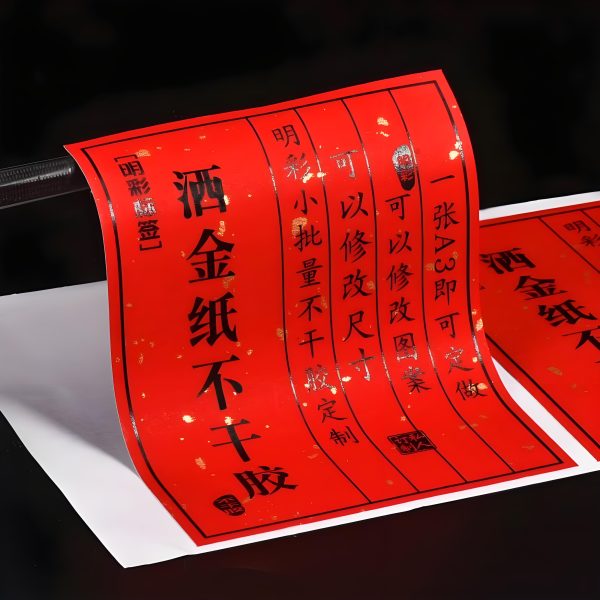 一张A3即可定做
可以修改图案
可以修改尺寸
明彩小批量不干胶定制
洒金纸不干胶
[明彩标签]
明彩
洒金纸不